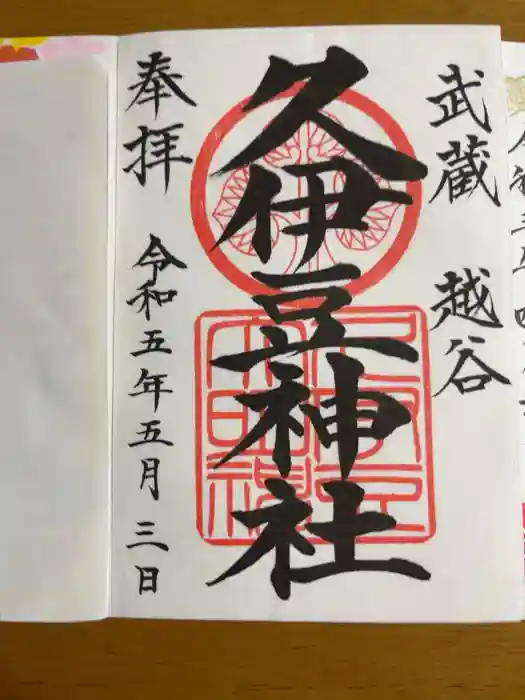 武蔵 越谷
久伊豆神社
奉拝 令和五年五月三日